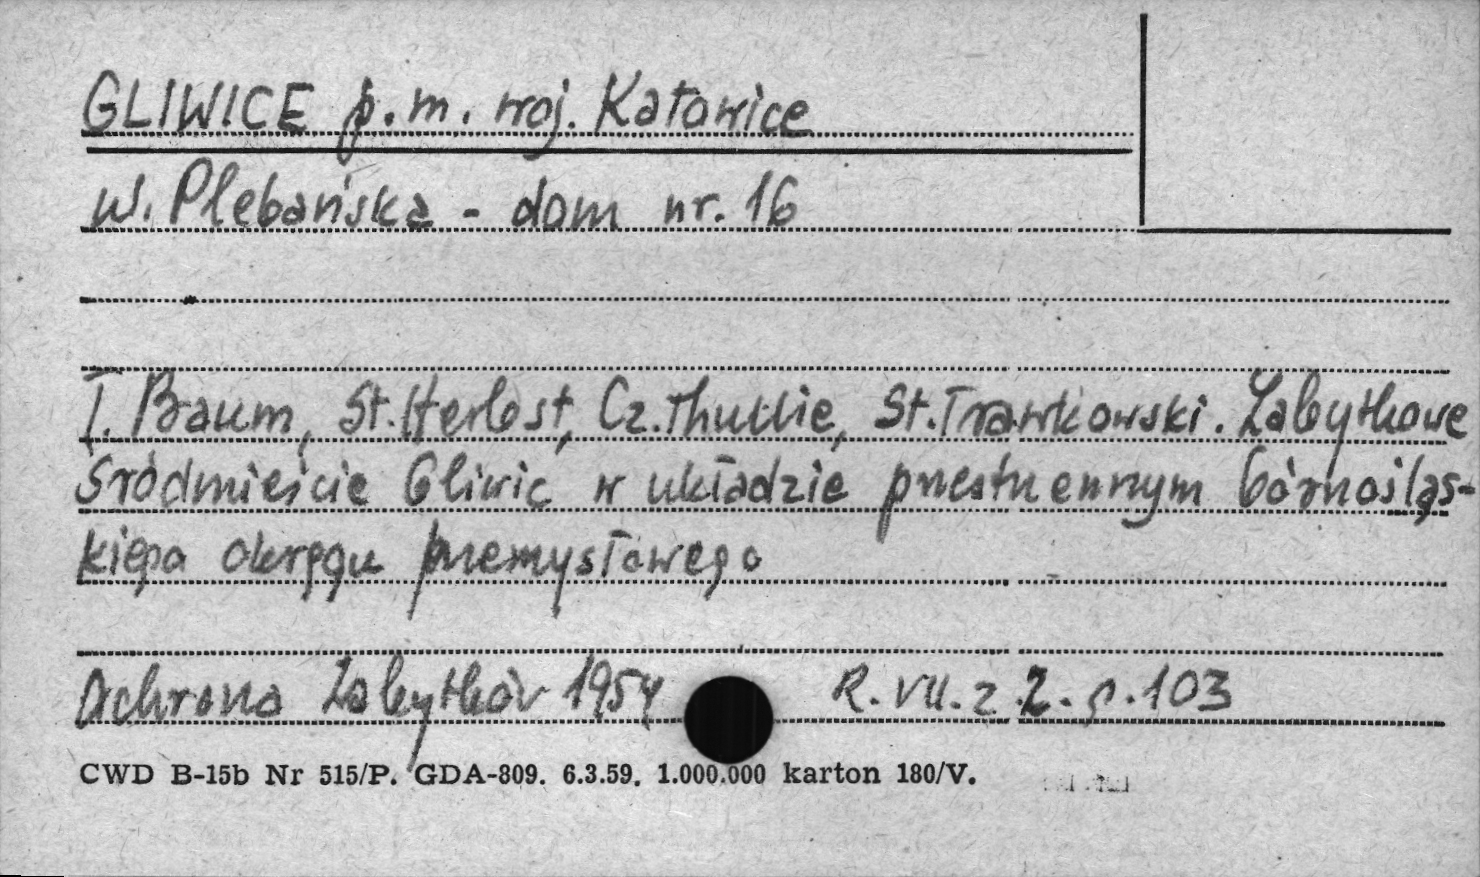 GLIWICE p.m. woj. Katowice
ul. Plebańska - dom nr. 16
T. Baum, St. Herbst, Cz. Thullie, St. Trawkowski. Zabytkowe
Śródmieście Gliwic w układzie przestrzennym Górnośląs-
kiego okręgu przemysłowego
Ochrona Zabytków 1954 R. VII. z. 2. s. 103
CWD B-15b Nr 515/P. GDA-809. 6.3.59. 1.000.000 karton 180/V.